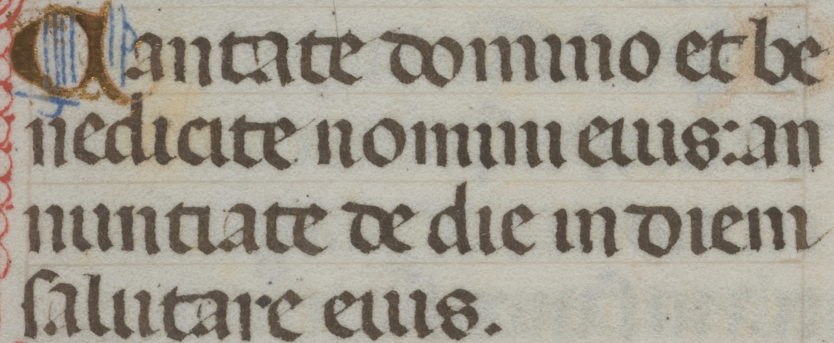 Cantate domino et be
nedicite nomini eius: an
nuntiate de die in diem
salutare eius.